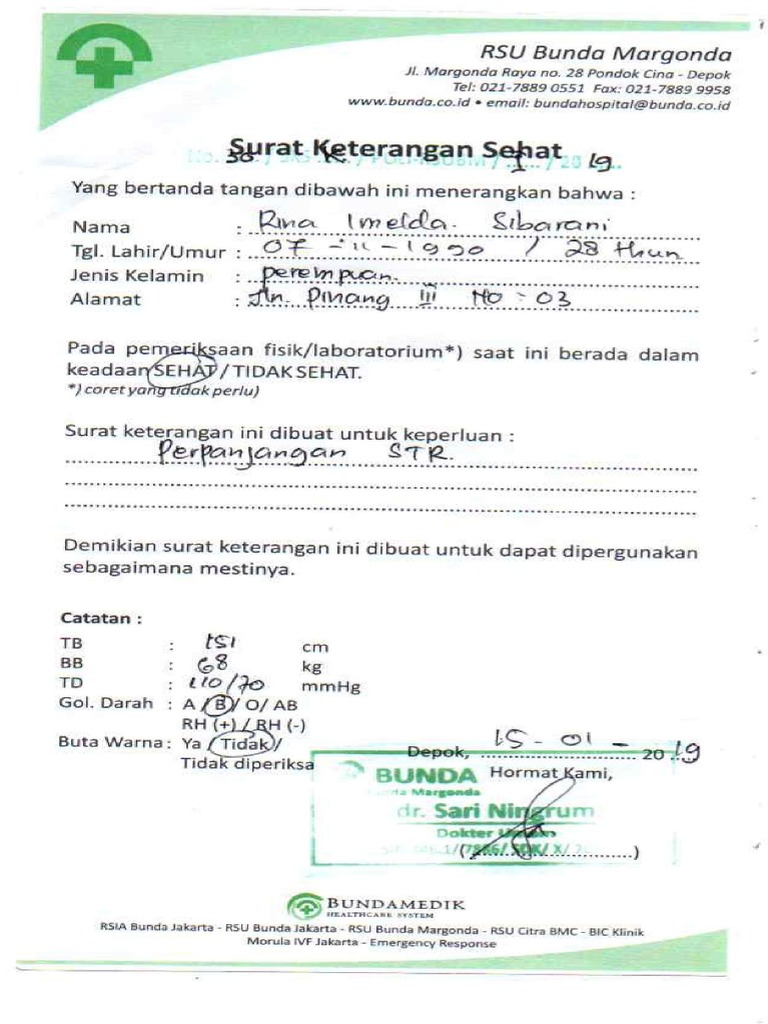 RSU Bunda Margonda
Jl. Margonda Raya no. 28 Pondok Cina - Depok
Tel: 021-7889 0551 Fax: 021-7889 9958
www.bunda.co.id • email: bundahospital@bunda.co.id
Surat Keterangan Sehat
No. 30 / SKS / K / POLI-RSUBM / I / 20 19
Yang bertanda tangan dibawah ini menerangkan bahwa :
Nama : Rina Imelda. Sibarani
Tgl. Lahir/Umur : 07 - 11 - 1990 / 28 thun
Jenis Kelamin : perempuan.
Alamat : Jln. Pinang III No : 03
Pada pemeriksaan fisik/laboratorium*) saat ini berada dalam
keadaan SEHAT / TIDAK SEHAT.
*) coret yang tidak perlu)
Surat keterangan ini dibuat untuk keperluan :
Perpanjangan STR.
Demikian surat keterangan ini dibuat untuk dapat dipergunakan
sebagaimana mestinya.
Catatan :
TB : 151 cm
BB : 68 kg
TD : 110/70 mmHg
Gol. Darah : A / B / O / AB
RH (+) / RH (-)
Buta Warna : Ya / Tidak /
Tidak diperiksa
Depok, 15 - 01 - 20 19
Hormat Kami,
BUNDA
Margonda
dr. Sari Ningrum
Dokter
BUNDAMEDIK
HEALTHCARE SYSTEM
RSIA Bunda Jakarta - RSU Bunda Jakarta - RSU Bunda Margonda - RSU Citra BMC - BIC Klinik
Morula IVF Jakarta - Emergency Response